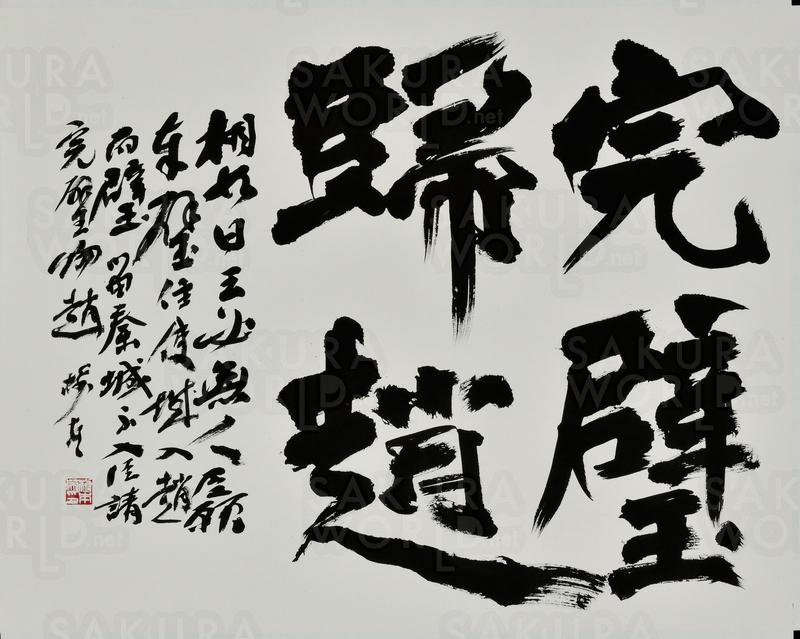 完璧
歸趙
相如曰王必無人臣願
奉璧往使城入趙
而璧留秦城不入臣請
完璧歸趙
SAKURA
WORLD.net